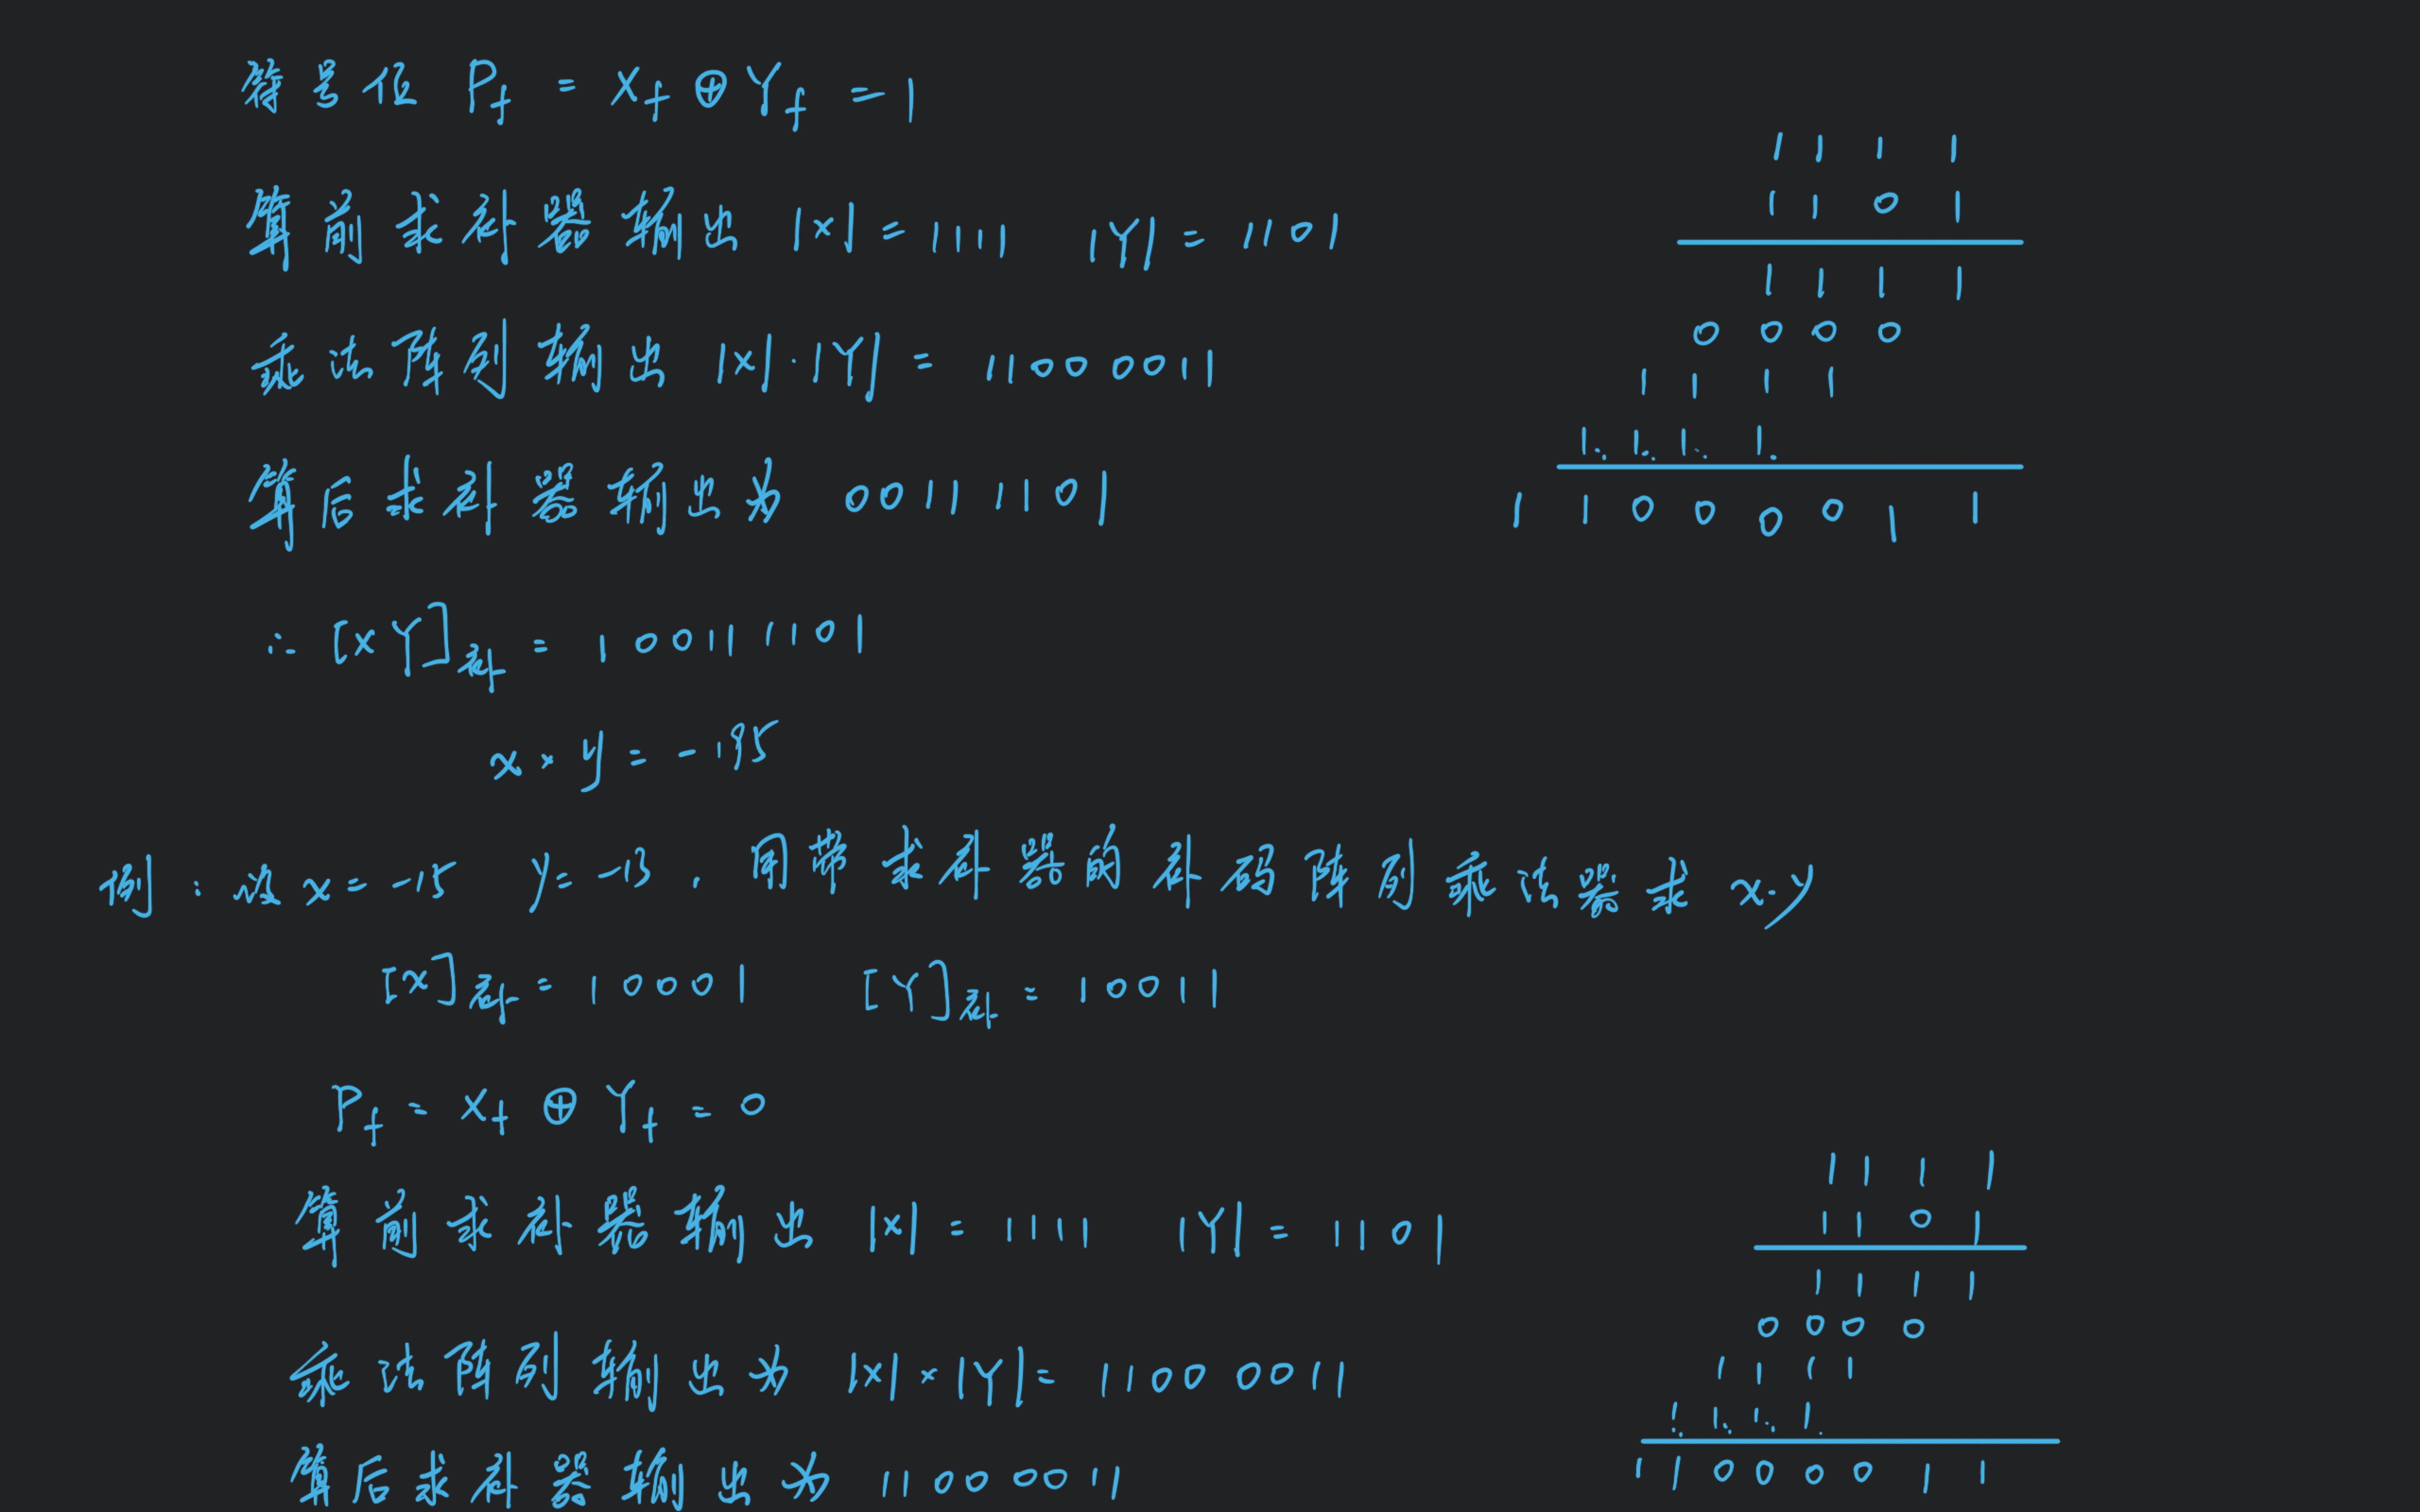 符号位 Pf = Xf ⊕ Yf = 1
算前求补器输出 |X| = 1111 |Y| = 1101
乘法阵列输出 |X|·|Y| = 11000011
算后求补器输出为 00111101
∴ [XY]补 = 100111101
x × y = -195
1 1 1 1
1 1 0 1
1 1 1 1
0 0 0 0
1 1 1 1
1. 1. 1. 1.
1 1 0 0 0 0 1 1
例: 设 x = -15 y = -13 . 用带求补器的补码阵列乘法器求 x·y
[X]补 = 10001 [Y]补 = 10011
Pf = Xf ⊕ Yf = 0
算前求补器输出 |X| = 1111 |Y| = 1101
乘法阵列输出为 |X| × |Y| = 11000011
算后求补器输出为 11000011
1 1 1 1
1 1 0 1
1 1 1 1
0 0 0 0
1 1 1 1
1. 1. 1. 1.
1 1 0 0 0 0 1 1